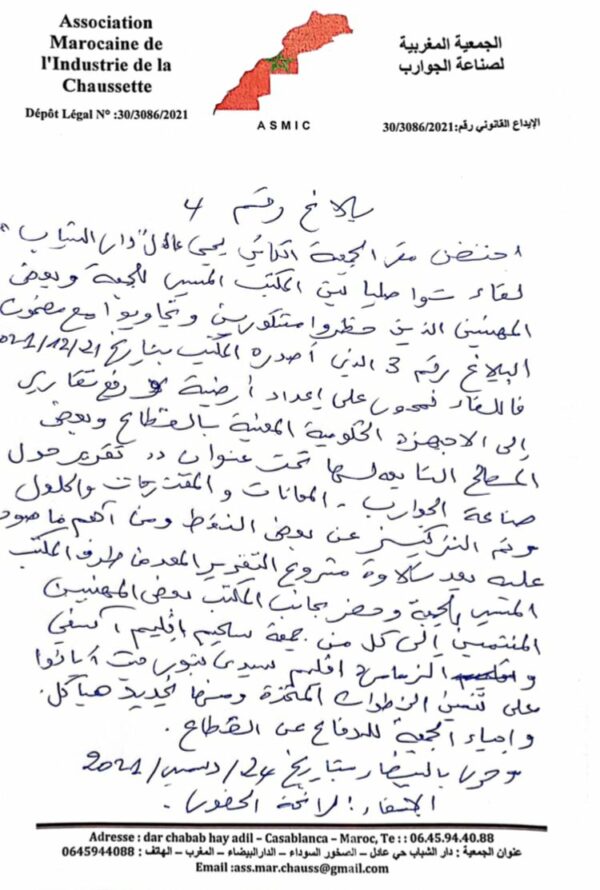 Association
Marocaine de
l'Industrie de la
Chaussette
Dépôt Légal N° :30/3086/2021
A S M I C
الجمعية المغربية
لصناعة الجوارب
الإيداع القانوني رقم:30/3086/2021
بلاغ رقم 4
احتضن مقر الجمعية الكائن بحي عادل "دار الشباب"
لقاء تواصليا بين المكتب المسير للجمعية وبعض
المهنيين الذين حظروا مشكورين وتجاوبوا مع مضمون
البلاغ رقم 3 الذي أصدره المكتب بتاريخ 2021/12/21
فاللقاء تمحور على إعداد أرضية و رفع تقارير
إلى الاجهزة الحكومية المعنية بالقطاع وبعض
المصالح التابعة لها تحت عنوان ,, تقرير حول
صناعة الجوارب - المعانات و المقترحات والحلول
وتم التركيز عن بعض النقط ومن أهم ما صود
عليه بعد تلاوة مشروع التقرير المعد من طرف المكتب
المسير للجمعية وحضر بجانب المكتب بعض المهنيين
المنتمين إلى كل من جمعة سحيم اقليم آسفي
و الزمامرة اقليم سيدي بنور حيت أبانوا
على تثمين الخطوات المتخذة ومنها تجديد هياكل
و إحياء الجمعية للدفاع عن القطاع .
وحرر بالبيضاء بتاريخ 24/دسمبر/2021
لائحة الحضور .
Adresse : dar chabab hay adil – Casablanca – Maroc, Te : : 06.45.94.40.88
عنوان الجمعية : دار الشباب حي عادل – الصخور السوداء – الدارالبيضاء – المغرب - الهاتف : 0645944088
Email :ass.mar.chauss@gmail.com